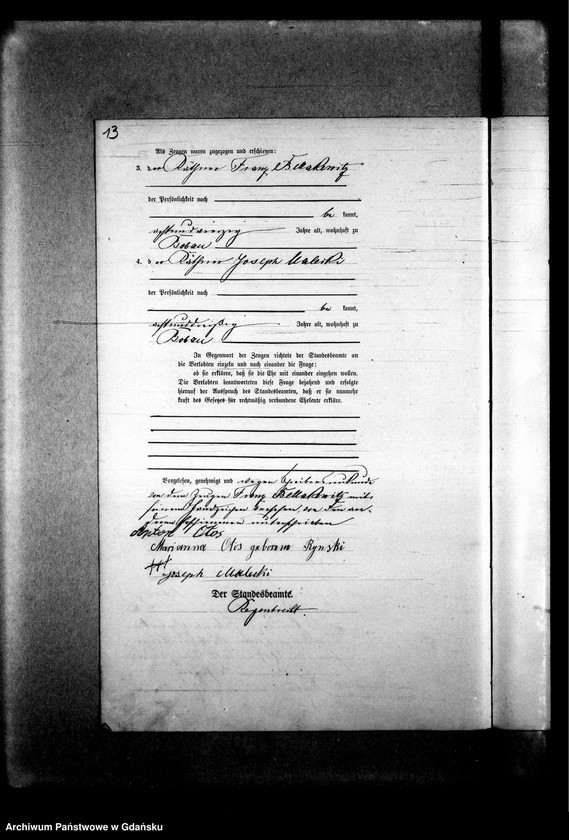 13
Als Zeugen waren zugezogen und erschienen:
3. der Käthner Franz
der Persönlichkeit nach
be kannt,
achtundvierzig Jahre alt, wohnhaft zu
Bobau
4. der Käthner Joseph Maleski
der Persönlichkeit nach
be kannt,
achtunddreißig Jahre alt, wohnhaft zu
Bobau
In Gegenwart der Zeugen richtete der Standesbeamte an
die Verlobten einzeln und nach einander die Frage:
ob sie erklären, daß sie die Ehe mit einander eingehen wollen.
Die Verlobten beantworteten diese Frage bejahend und erfolgte
hierauf der Ausspruch des Standesbeamten, daß er sie nunmehr
kraft des Gesetzes für rechtmäßig verbundene Eheleute erkläre.
Vorgelesen, genehmigt und wegen Schreibensunkunde
von dem Zeugen Franz mit
seinem Handzeichen versehen, von den an-
dern Erschienenen unterschrieben
Anton Otos
Marianna Otos geborene Rynski
+++
Joseph Maleski
Der Standesbeamte.
Regenbrecht
Archiwum Państwowe w Gdańsku